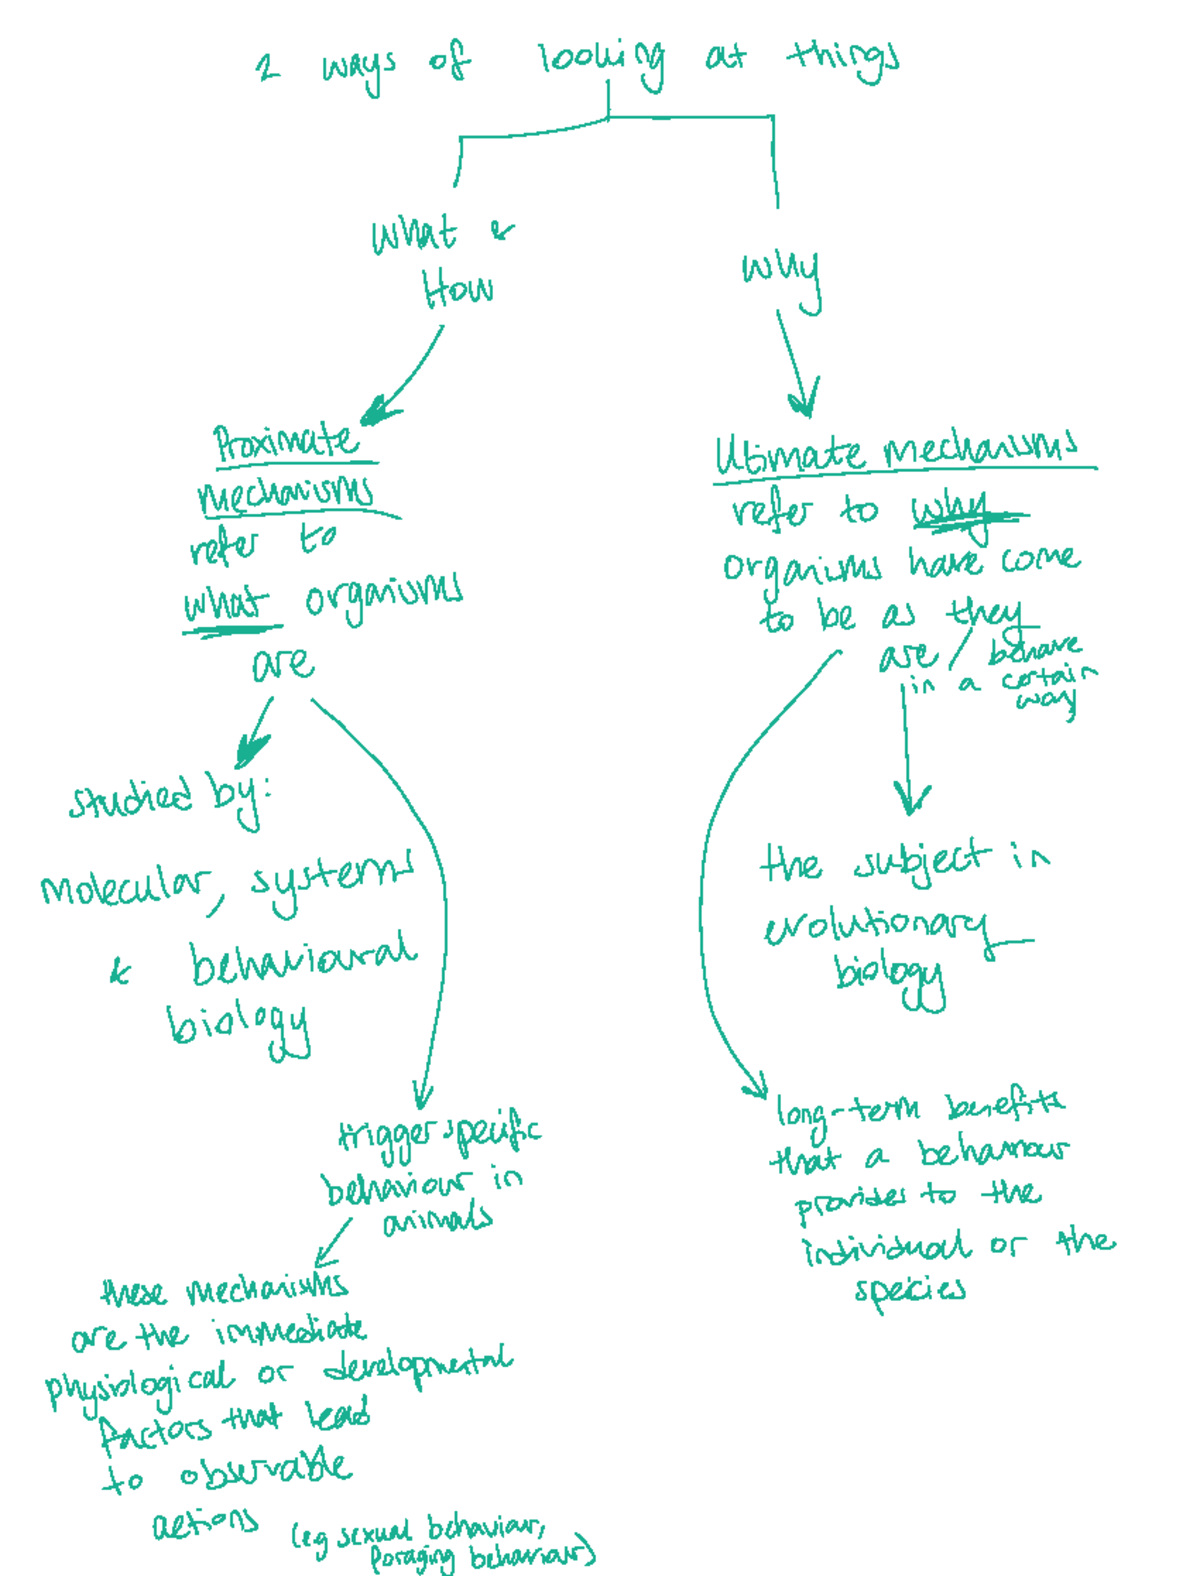 2 ways of looking at things
what &
How
why
Proximate
mechanisms
refer to
what organisms
are
Ultimate mechanisms
refer to why
organisms have come
to be as they
are / behave
in a certain
way
studied by:
molecular, systems
& behavioural
biology
the subject in
evolutionary
biology
trigger specific
behaviour in
animals
long-term benefits
that a behaviour
provides to the
individual or the
species
these mechanisms
are the immediate
physiological or developmental
factors that lead
to observable
actions
(eg sexual behaviour,
foraging behaviour)